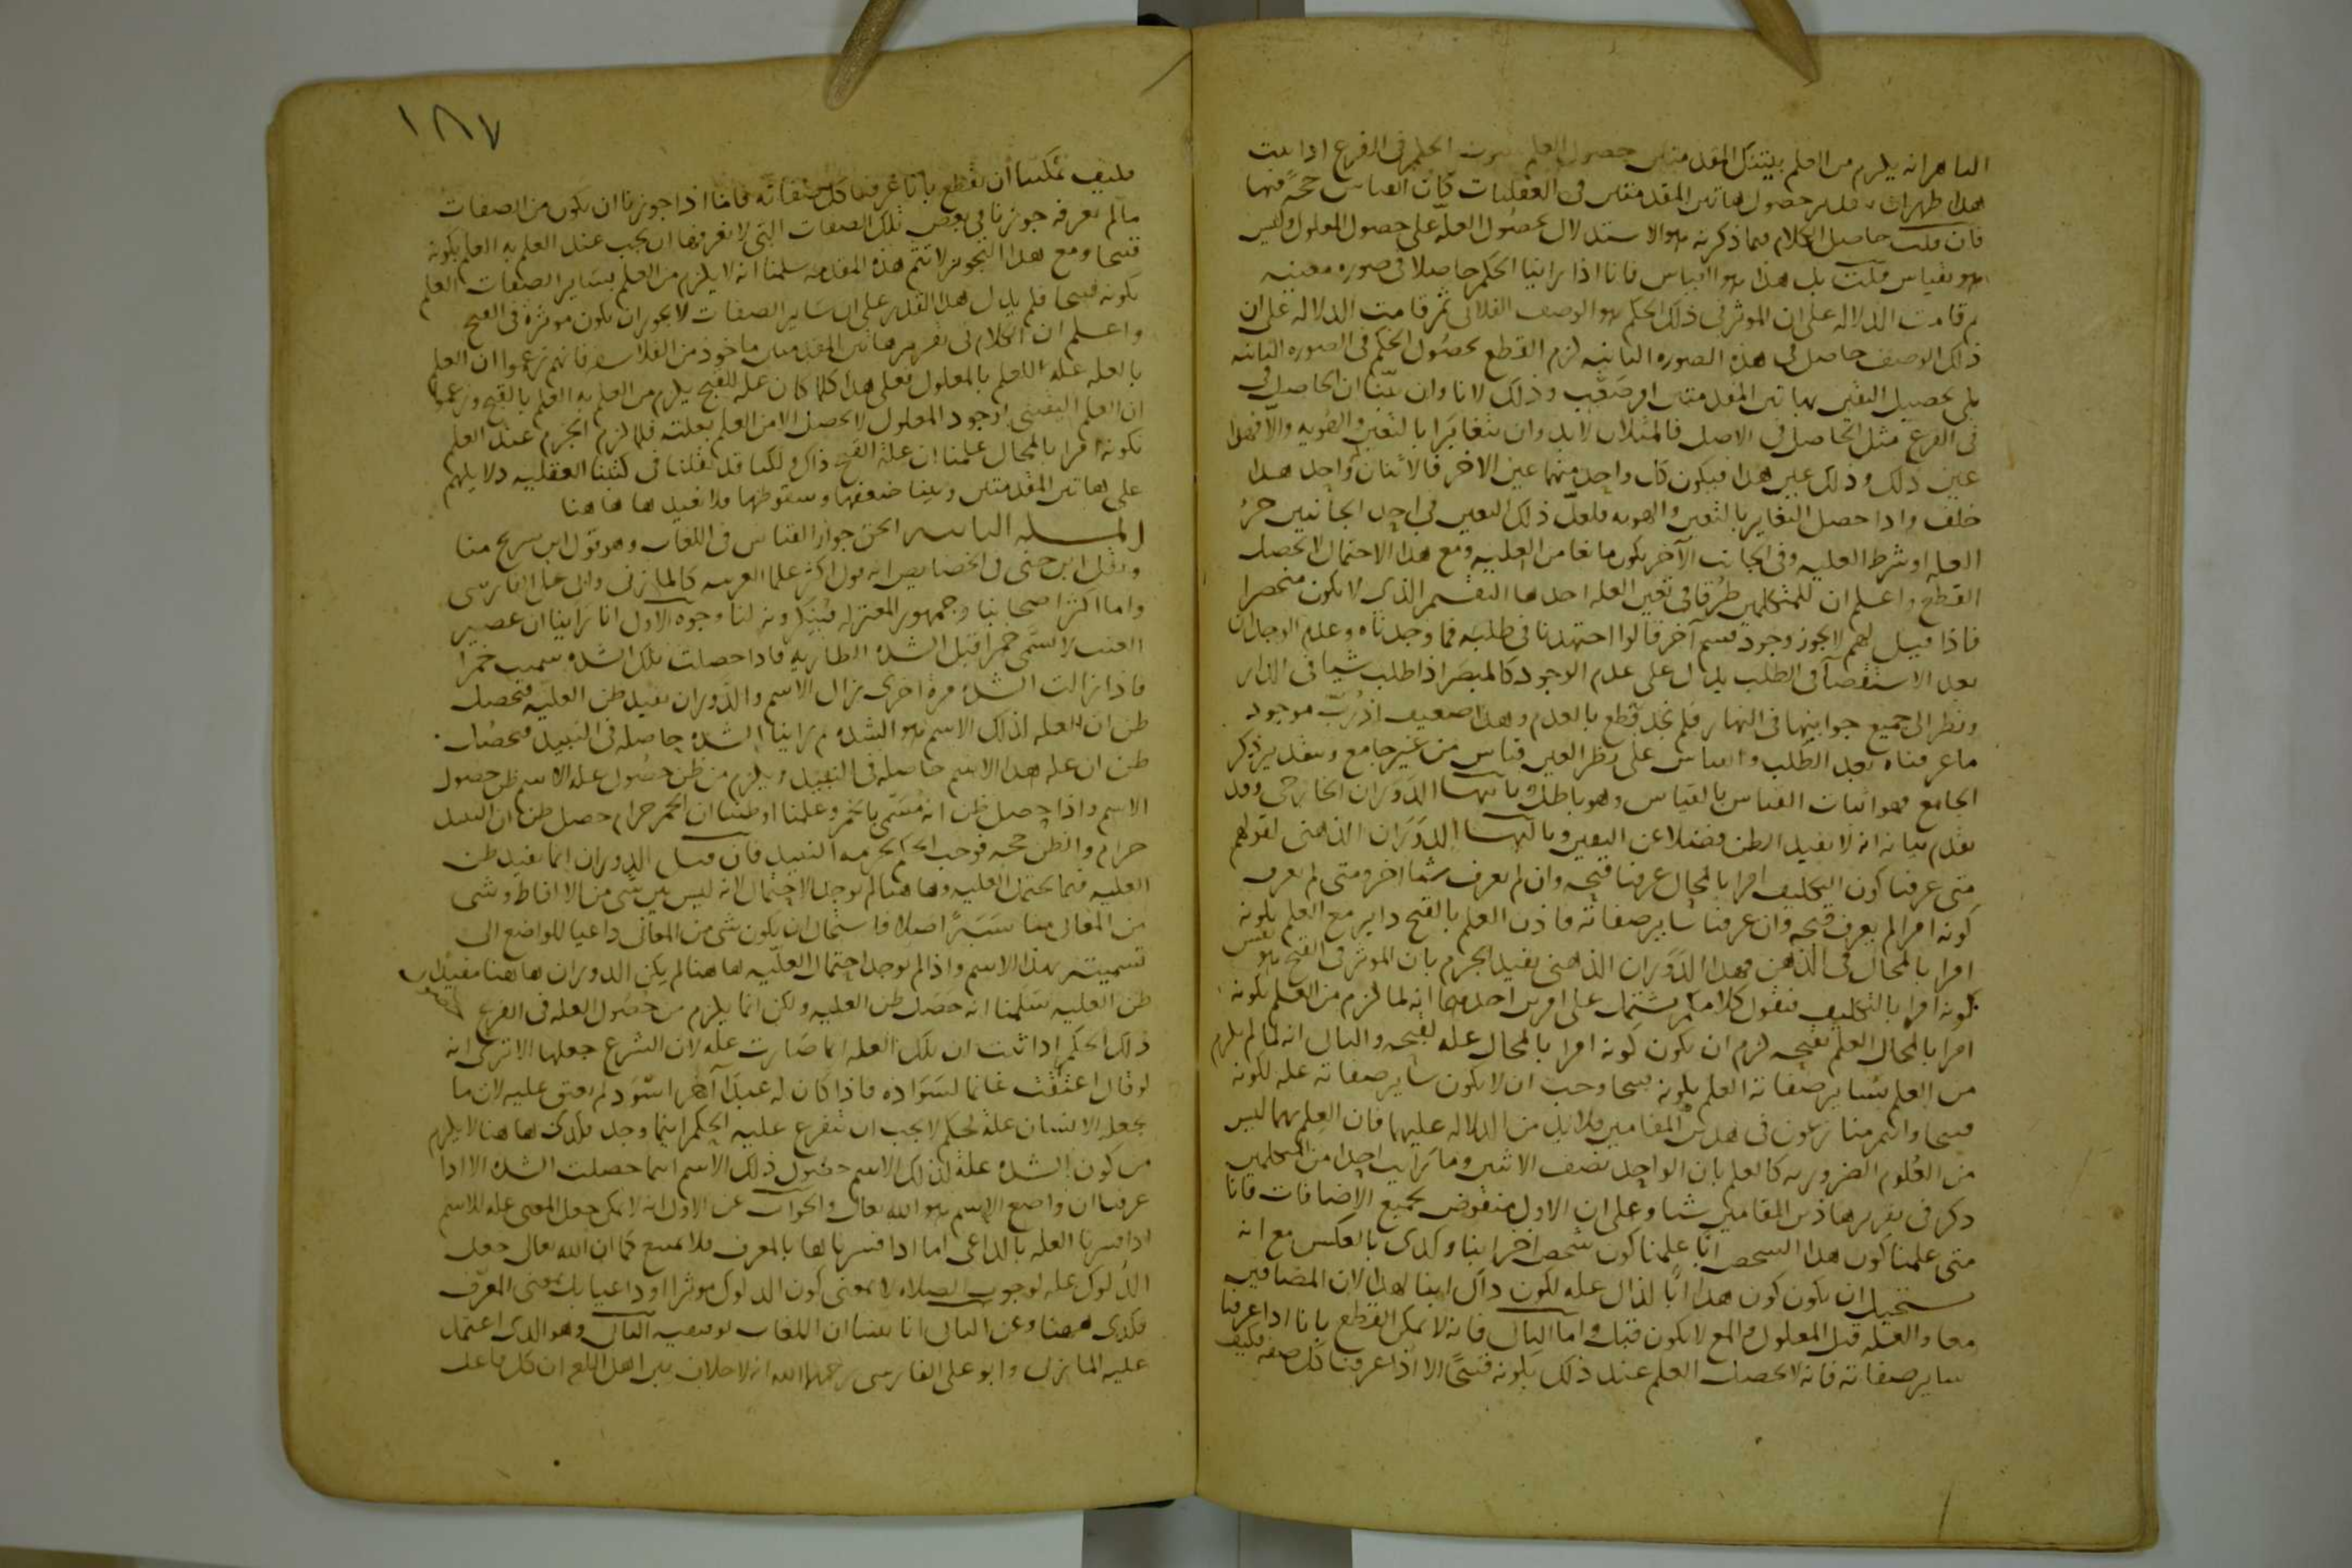 الظاهر انه يلزم من العلم بتينك المقدمتين حصول العلم بثبوت الحكم في الفرع اذا ثبت
هذا ظهر ان بتقدير حصول هاتين المقدمتين في العقليات كان القياس حجة فيها
فان قلت حاصل الكلام فيما ذكرته هو الاستدلال بحصول العلة على حصول المعلول وليس
هو بقياس قلت بل هذا هو القياس فانا اذا راينا الحكم حاصلا في صورة معينة
ثم قامت الدلالة على ان الموثر في ذلك الحكم هو الوصف الفلاني ثم قامت الدلالة على ان
ذلك الوصف حاصل في هذه الصورة الثانية لزم القطع بحصول الحكم في الصورة الثانية
بلى تحصيل اليقين بهاتين المقدمتين امر صعب وذلك لانا وان بينا ان الحاصل في
في الفرع مثل الحاصل في الاصل فالمثلان لابد وان يتغايرا بالتعين والهوية والا فهذا
عين ذلك وذلك عين هذا فيكون كل واحد منهما عين الاخر فالاثنان واحد هذا
خلف واذا حصل التغاير بالتعين والهوية فلعل ذلك التعين في احد الجانبين جزء
العلة او شرط العلية وفي الجانب الآخر يكون مانعا من العلية ومع هذا الاحتمال لا يحصل
القطع واعلم ان للمتكلمين طرقا في تعين العلة احدها التقسيم الذي لا يكون منحصرا
فاذا قيل لهم لا يجوز وجود قسم آخر قالوا اجتهدنا في طلبه فما وجدناه وعدم الوجدان
بعد الاستقصآ في الطلب يدل على عدم الوجود كالمبصر اذا طلب شيا في الدار
ونظر الى جميع جوانبها في النهار فلم يجد قطع بالعدم وهذا ضعيف اذ رب موجود
ما عرفناه بعد الطلب والقياس على نظر العين قياس من غير جامع وبتقدير ذكر
الجامع فهو اثبات القياس بالقياس وهو باطل وثانيها الدوران الخارجي وقد
تقدم بيانه انه لا يفيد الظن فضلا عن اليقين وثالثها الدوران الذهني لقولهم
متى عرفنا كون التكليف امرا بالمحال عرفنا قبحه وان لم نعرف شيا اخر ومتى لم نعرف
كونه امرا لم نعرف قبحه وان عرفنا ساير صفاته فاذن العلم بالقبح داير مع العلم بكونه
امرا بالمحال في الذهن فهذا الدوران الذهني يفيد الجزم بان الموثر في القبح هو نفس
كونه امرا بالتكليف فنقول كلامكم مشتمل على امرين احدهما انه لما لزم من العلم بكونه
امرا بالمحال العلم بقبحه لزم ان يكون كونه امرا بالمحال علة لقبحه والثاني انه لما لم يلزم
من العلم بساير صفاته العلم بكونه قبيحا وجب ان لا يكون ساير صفاته علة لكونه
قبيحا وانتم منازعون في هذين المقامين فلابد من الدلالة عليهما فان العلم بهما ليس
من العلوم الضرورية كالعلم بان الواحد نصف الاثنين وما رايت احدا من المتكلمين
ذكر في تقرير هاذين المقامين شيا وعلى ان الاول منقوض بجميع الاضافات فانا
متى علمنا كون هذا الشخص ابا علمنا كون شخص اخر ابنا وكذى بالعكس مع انه
يستحيل ان يكون كون هذا ابا لذاك علة لكون ذاك ابنا لهذا لان المضافين
معا والعلة قبل المعلول والمع لا يكون قبل واما الثاني فانه لا يمكن القطع بانا اذا عرفنا
ساير صفاته فانه لا يحصل العلم عند ذلك بكونه قبيحا الا اذا عرفنا كل صفه
فكيف
١٨٧
فكيف يمكننا أن نقطع بانا عرفنا كل صفاته فاننا اذا جوزنا ان يكون من الصفات
مالم نعرفه جوزنا في بعض تلك الصفات التي لا نعرفها ان يجب عند العلم به العلم بكونه
قبيحا ومع هذا التجويز لا تتم هذه المقدمه سلمنا انه لا يلزم من العلم بساير الصفات العلم
بكونه قبيحا فلم يدل هذا القدر على ان ساير الصفات لا يجوز ان يكون موثرة في القبح
واعلم ان الكلام في تقرير هاتين المقدمتين ماخوذ من الفلاسفه فانهم زعموا ان العلم
بالعلة علة للعلم بالمعلول فعلى هذا كلما كان علة للقبح يلزم من العلم به العلم بالقبح وزعموا
ان العلم اليقيني بوجود المعلول لا يحصل الا من العلم بعلته فلما لزم الجزم عند العلم
بكونه امرا بالمحال علمنا ان علة القبح ذاك ولكنا قد نقلنا في كتبنا العقلية دلايلهم
على هاتين المقدمتين وبينا ضعفها وسقوطها فلا نعيدها هاهنا
المسله الثانيه الحق جواز القياس في اللغات وهو قول ابن سريج منا
ونقل ابن جني في الخصايص انه قول اكثر علما العربيه كالمازني وابي علي الفارسي
واما اكثر اصحابنا وجمهور المعتزله فينكرونه لنا وجوه الاول انا راينا ان عصير
العنب لا يسمى خمرا قبل الشدة الطاريه فاذا حصلت تلك الشدة سميت خمرا
فاذا زالت الشدة مرة اخرى زال الاسم والدوران يفيد ظن العليه فيحصل
ظن ان العلة لذلك الاسم هو الشدة ثم راينا الشدة حاصلة في النبيذ فيحصل
ظن ان علة هذا الاسم حاصلة في النبيذ ويلزم من ظن حصول علة الاسم ظن حصول
الاسم واذا حصل ظن انه مسمى بالخمر وعلمنا او ظننا ان الخمر حرام حصل ظن ان النبيذ
حرام والظن حجه فوجب الحكم بحرمة النبيذ فان قيل الدوران انما يفيد ظن
العليه فيما يحتمل العليه وهاهنا لم يوجد الاحتمال لانه ليس بين شي من الالفاظ وشي
من المعاني مناسبة اصلا فاستحال ان يكون شي من المعاني داعيا للواضع الى
تسميته بهذا الاسم واذا لم يوجد احتمال العليه هاهنا لم يكن الدوران هاهنا مفيدا
ظن العليه سلمنا انه حصل ظن العليه ولكن انما يلزم من حصول العلة في الفرع
ذلك الحكم اذا ثبت ان تلك العلة انما صارت علة لان الشرع جعلها الا ترى انه
لو قال اعتقت غانما لسواده فاذا كان له عبد آخر اسود لم يعتق عليه لان ما
يجعله الانسان علة لحكم لا يجب ان يتفرع عليه الحكم اينما وجد فكذلك هاهنا لا يلزم
من كون الشدة علة لذلك الاسم حصول ذلك الاسم اينما حصلت الشدة الا اذا
عرفنا ان واضع الاسم هو الله تعالى والجواب عن الاول انه لا يمكن جعل المعنى علة للاسم
اذا فسرنا العلة بالداعي اما اذا فسرناها بالمعرف فلا يمتنع كما ان الله تعالى جعل
الدلوك علة لوجوب الصلاة لا بمعنى كون الدلوك موثرا او داعيا بل بمعنى المعرف
فكذى ههنا وعن الثاني انا بينا ان اللغات توقيفيه الثاني وهو الذي اعتمد
عليه المازني وابو علي الفارسي رحمهما الله انه لا خلاف بين اهل اللغه ان كل فاعل